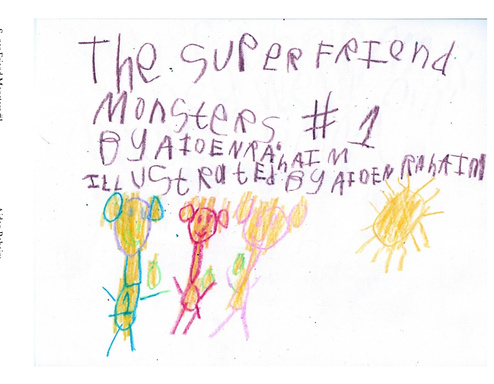 The SUPERFRIEND
MonsteRs #1
BY AIDENRAhAIM
ILLUSTRatEd BY AIDEN RahAIM